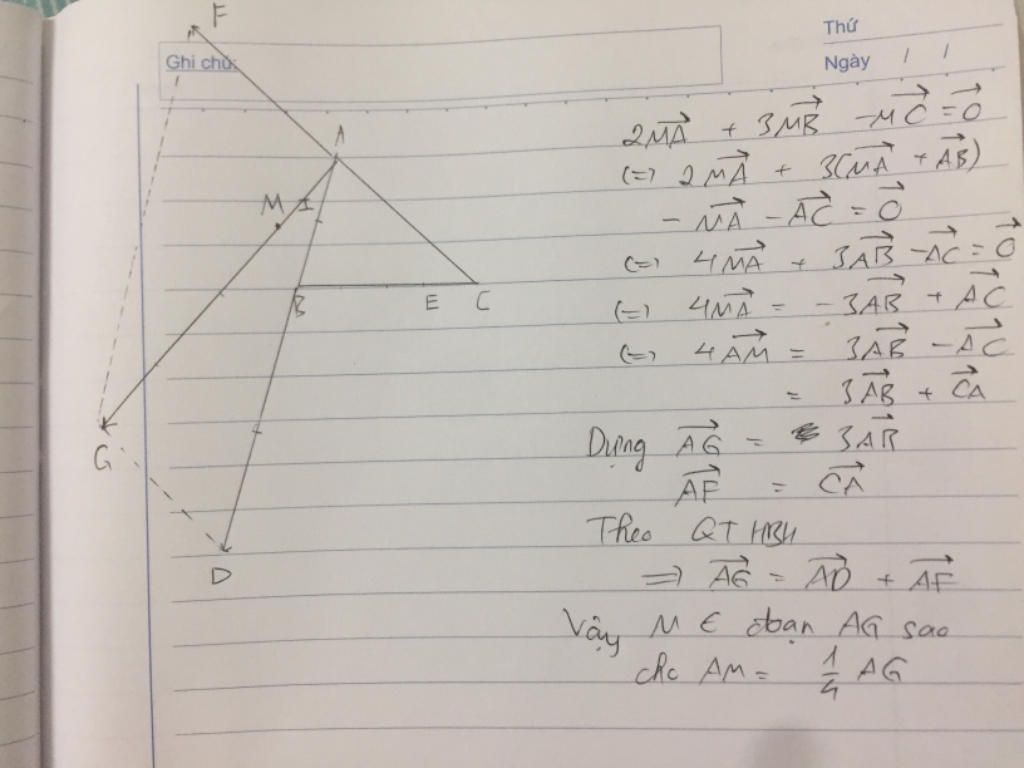 F
Thứ
Ghi chú:
Ngày / /
A
2MA⃗ + 3MB⃗ - MC⃗ = 0⃗
(=) 2MA⃗ + 3(MA⃗ + AB⃗)
- MA⃗ - AC⃗ = 0⃗
M I
(=) 4MA⃗ + 3AB⃗ - AC⃗ = 0⃗
B E C
(=) 4MA⃗ = -3AB⃗ + AC⃗
(=) 4AM⃗ = 3AB⃗ - AC⃗
= 3AB⃗ + CA⃗
G
Dựng AG⃗ = 3AB⃗
AF⃗ = CA⃗
Theo QT HBH
D
=) AG⃗ = AD⃗ + AF⃗
Vậy M ∈ đoạn AG sao
cho AM = 1/4 AG